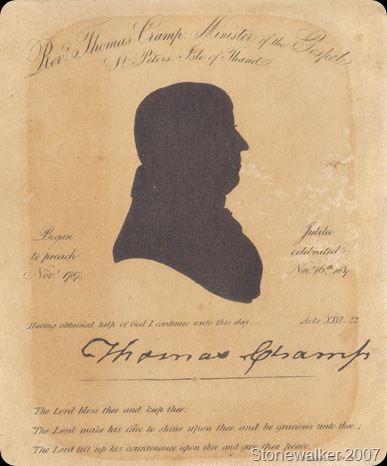 Revd. Thomas Cramp Minister of the Gospel
St. Peters Isle of Thanet
Began
to preach
Novr. 1787
Jubilee
celebrated
Novr. 16th 1837
Having obtained help of God I continue unto this day. Acts XXVI. 22
Thomas Cramp
The Lord bless thee and keep thee:
The Lord make his face to shine upon thee and be gracious unto thee;
The Lord lift up his countenance upon thee and give thee peace
Stonewalker 2007